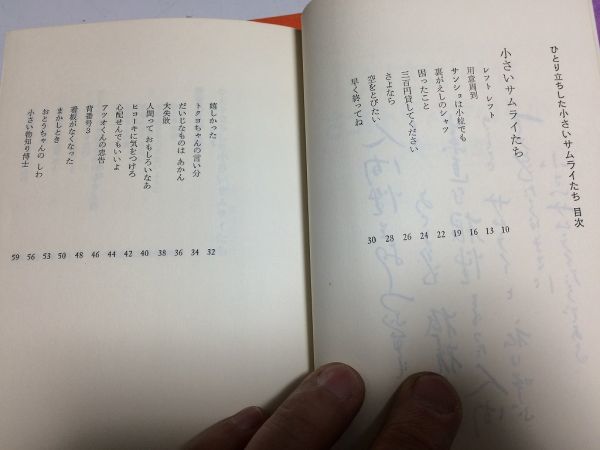 ひとり立ちした小さいサムライたち 目次
小さいサムライたち
レフト レフト 10
用意周到 13
サンショは小粒でも 16
裏がえしのシャツ 19
困ったこと 22
三百円貸してください 24
さよなら 26
空をとびたい 28
早く終ってね 30
嬉しかった 32
トクヨちゃんの言い分 34
だいじなものは あかん 36
大失敗 38
人間って おもしろいなあ 40
ヒョーキに気をつけろ 42
心配せんでもいいよ 44
アツオくんの忠告 46
背番号3 48
看板がなくなった 50
まかしとき 53
おとうちゃんの しわ 56
小さい物知り博士 59